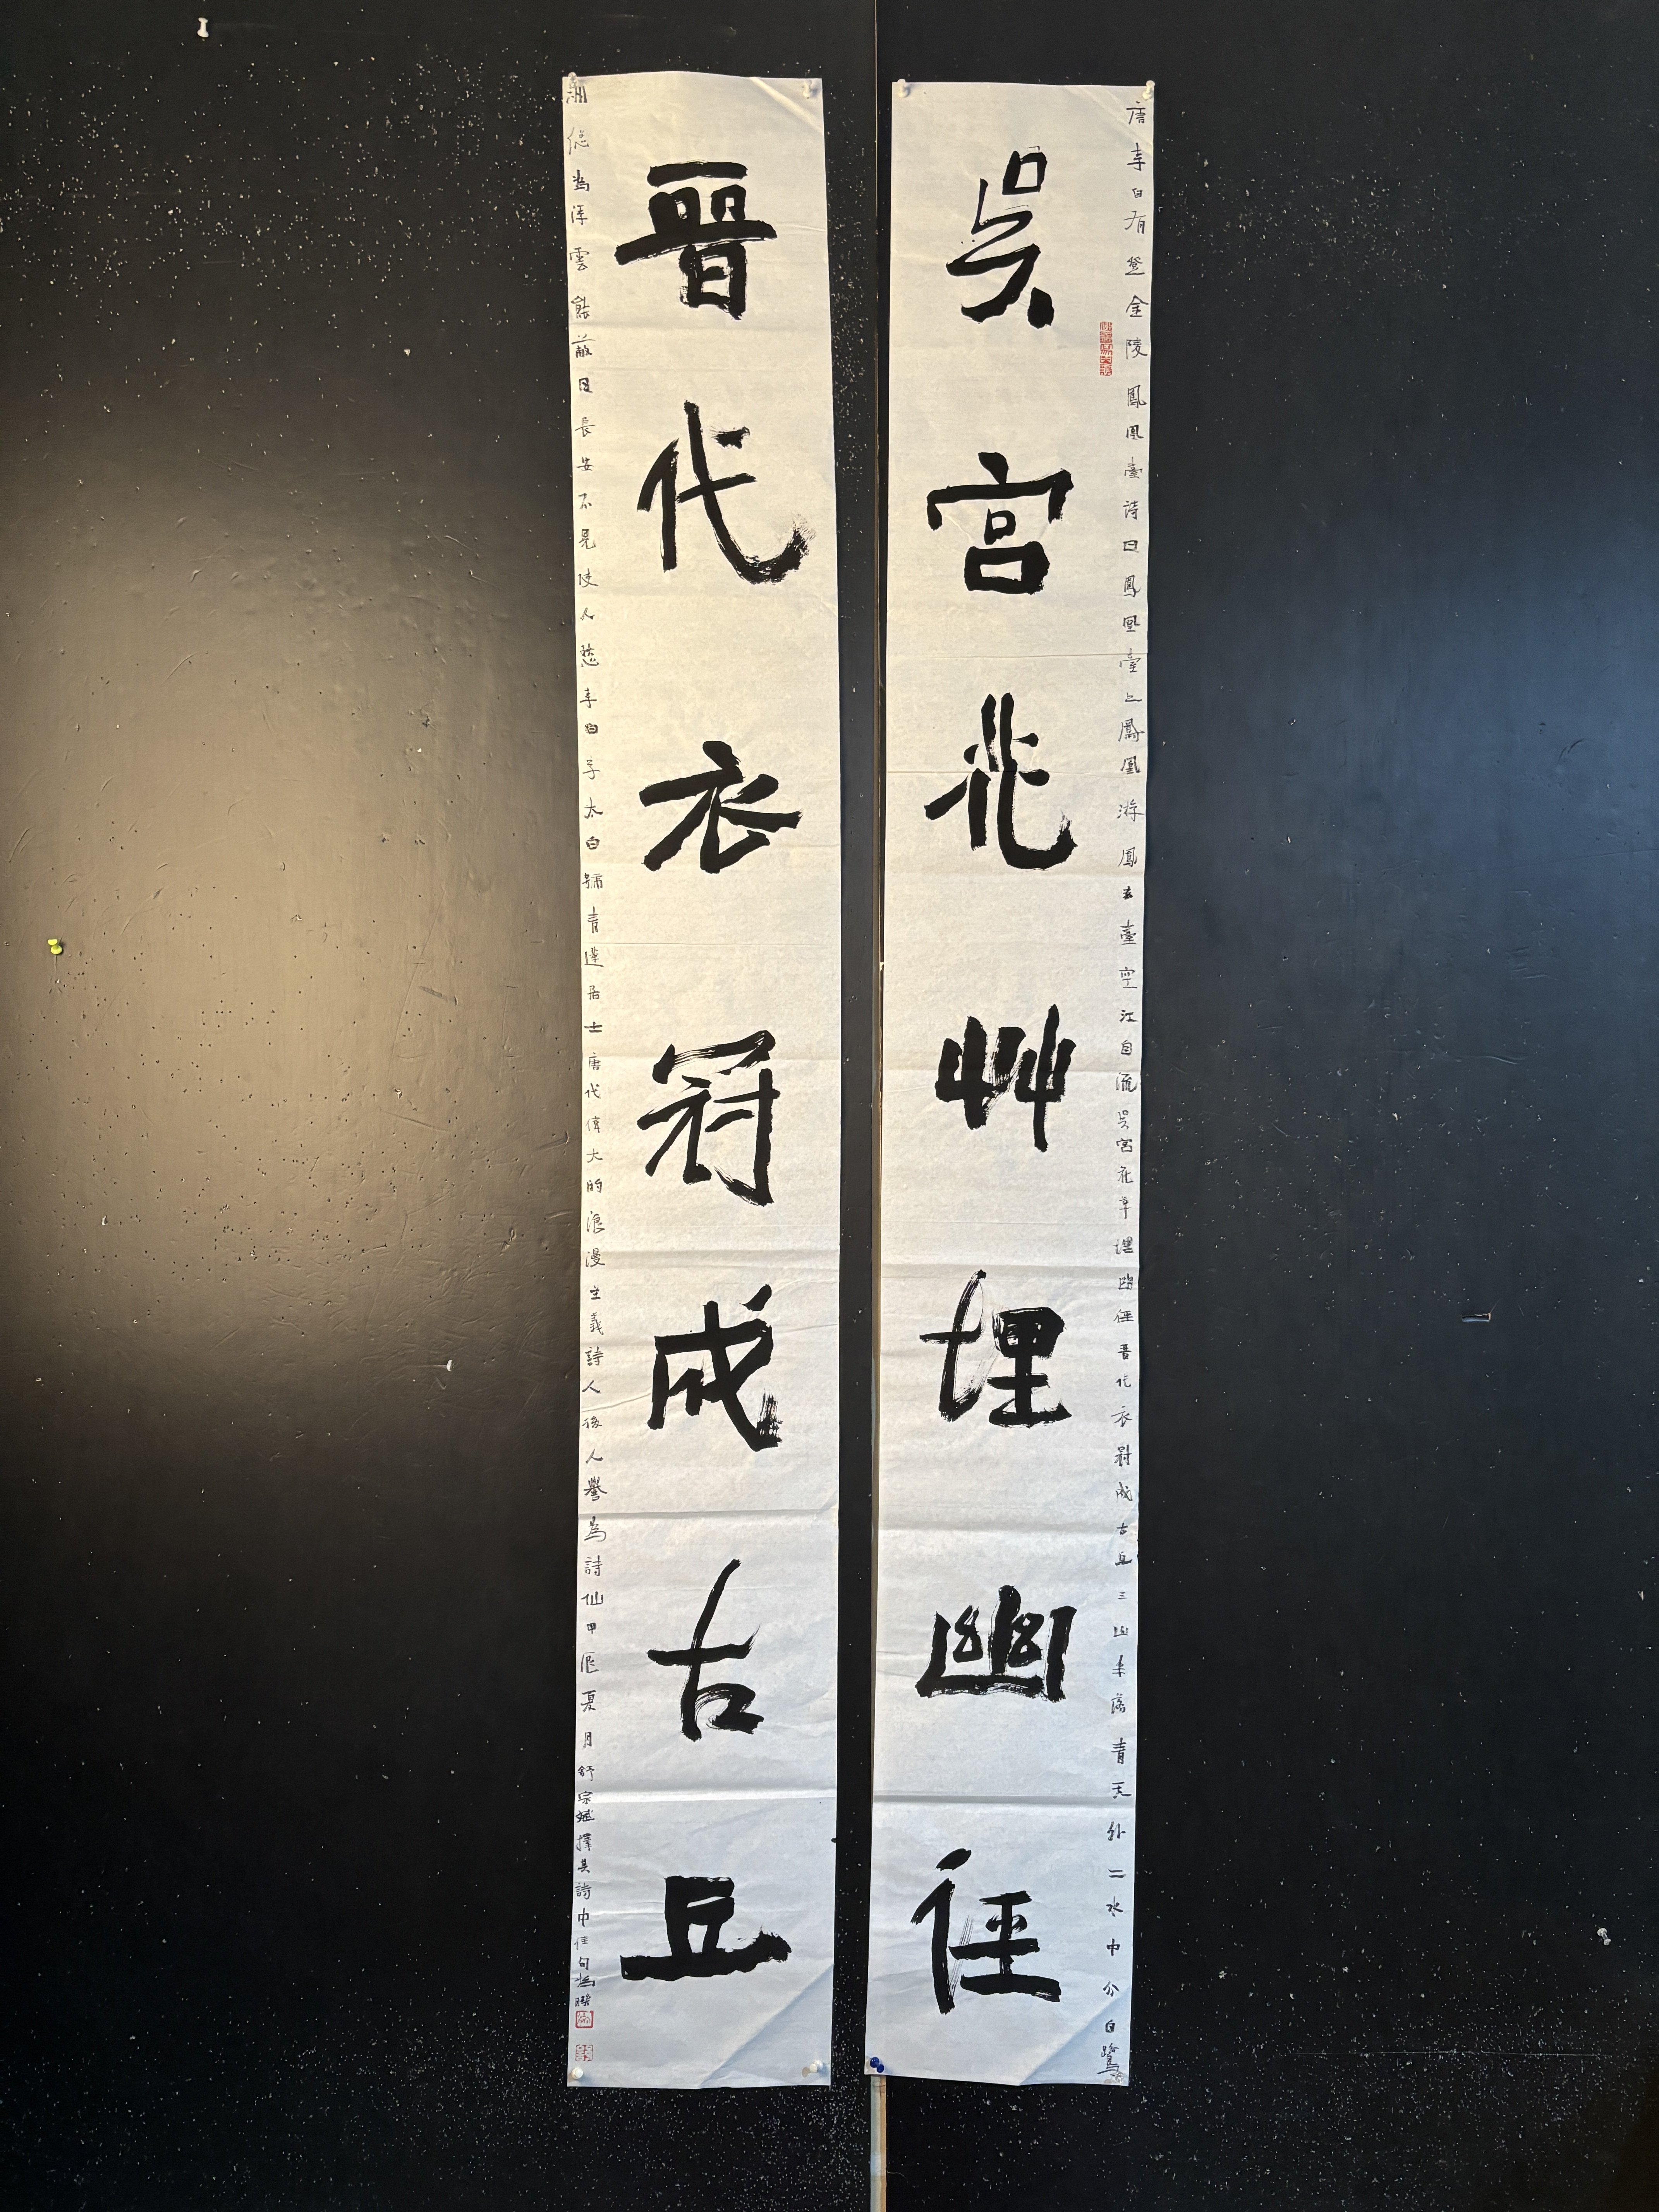 唐李白有登金陵鳳凰臺詩曰鳳凰臺上鳳凰游鳳去臺空江自流吳宮花草埋幽徑晉代衣冠成古丘三山半落青天外二水中分白鷺
吳宮花艸埋幽徑
晉代衣冠成古丘
洲總為浮雲能蔽日長安不見使人愁李白字太白號青蓮居士唐代偉大的浪漫主義詩人後人譽為詩仙甲辰夏月舒宗斌擇其詩中佳句為聯